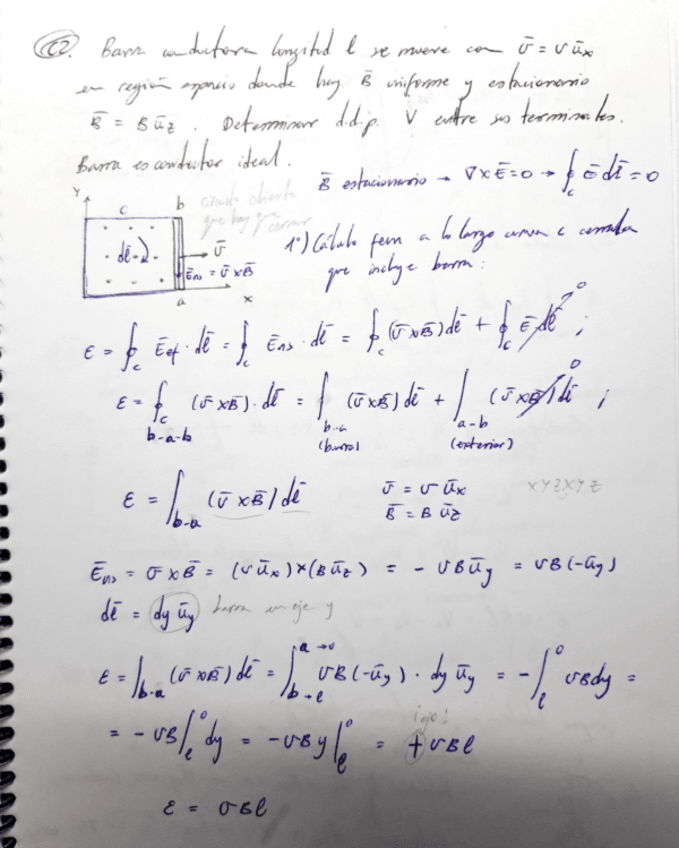 C2. Barra conductora longitud l se mueve con v̄ = v ūx
en región espacio donde hay B̄ uniforme y estacionario
B̄ = B ūz. Determinar d.d.p. V entre sus terminales.
Barra es conductor ideal.
B̄ estacionario → ∇×Ē=0 → ∮c Ē dl̄ = 0
Y c b
circuito abierto
que hay que cerrar
dl̄ v̄
Ēns = v̄×B̄
a x
1º) Cálculo fem a lo largo curva c cerrada
que incluye barra:
ε = ∮c Ēef · dl̄ = ∮c Ēns · dl̄ = ∮c (v̄×B̄) dl̄ + ∮c Ē dl̄ 0 ;
ε = ∮c (v̄×B̄) · dl̄ = ∫ (v̄×B̄) dl̄ + ∫ (v̄×B̄) dl̄ 0 ;
b-a-b b-a a-b
(barra) (exterior)
ε = ∫b-a (v̄×B̄) dl̄ v̄ = v ūx XYZXYZ
B̄ = B ūz
Ēns = v̄×B̄ = (v ūx)×(B ūz) = - vB ūy = vB(-ūy)
dl̄ = dy ūy barra en eje y
ε = ∫b-a (v̄×B̄) dl̄ = ∫b→l a→0 vB(-ūy) · dy ūy = -∫l 0 vB dy =
= -vB ∫l 0 dy = -vB y |l 0 = + vBl
ojo!
ε = vBl